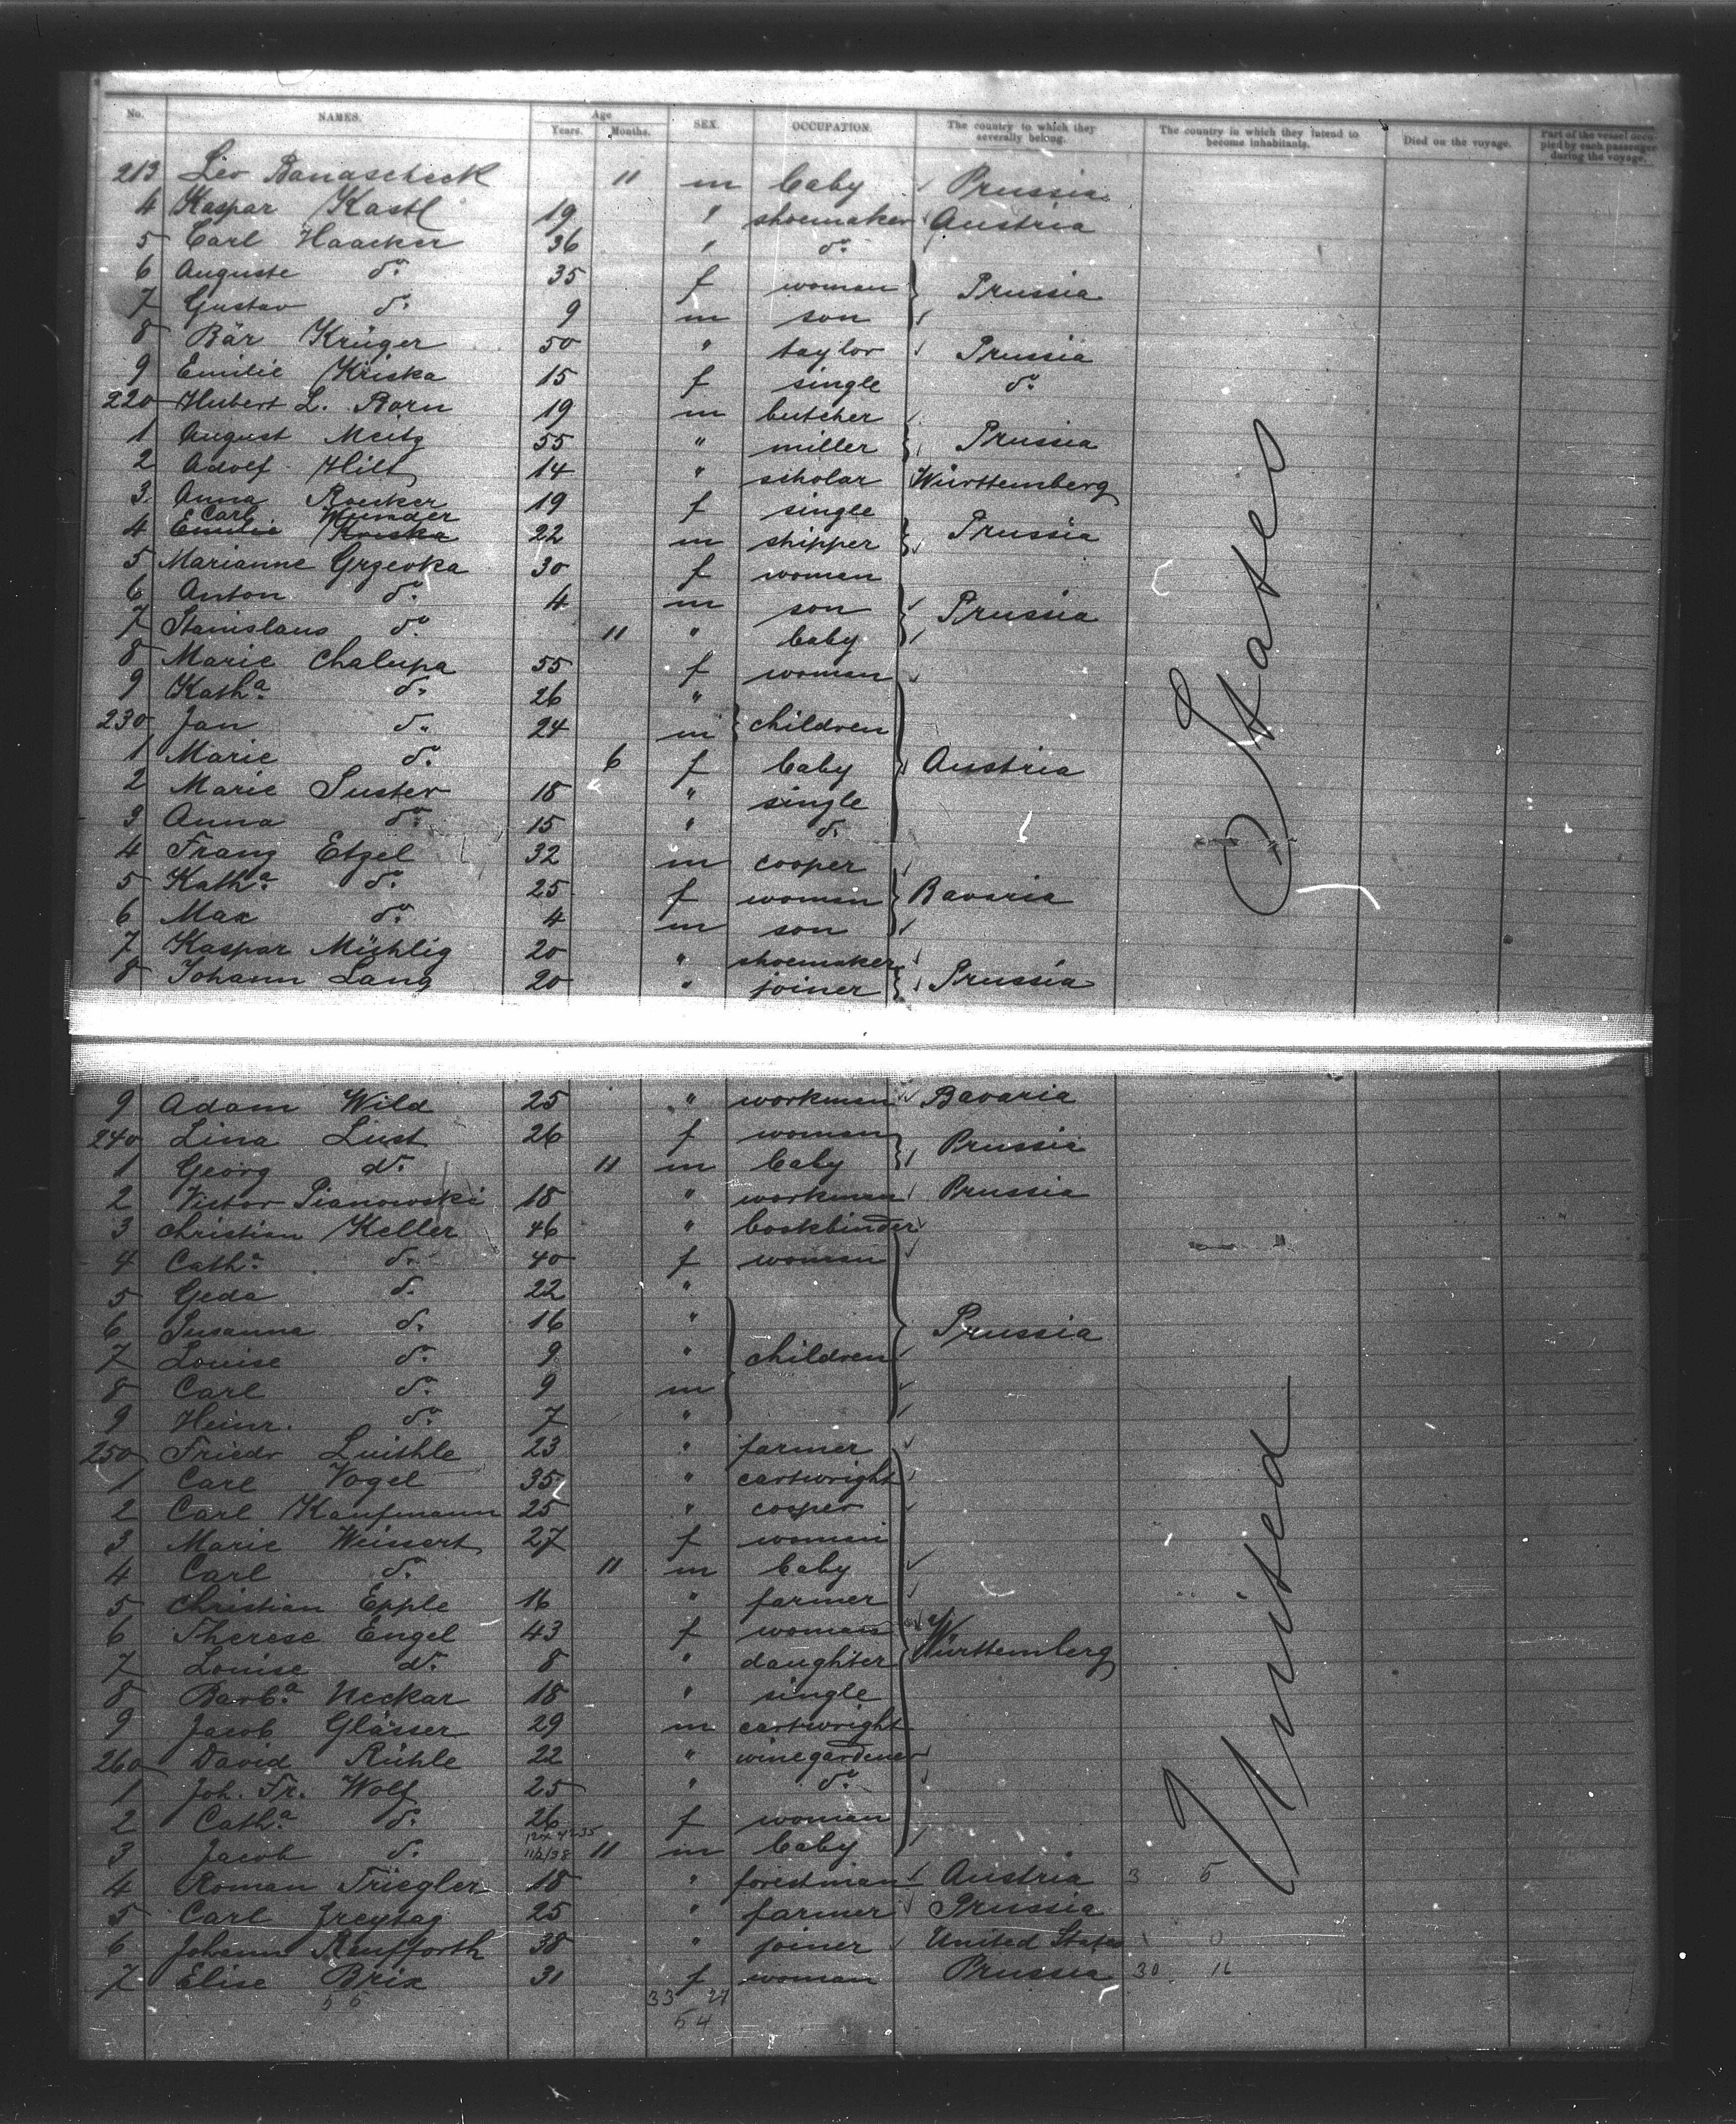 No. NAMES. Age Years. Months. SEX. OCCUPATION. The country to which they severally belong. The country in which they intend to become inhabitants. Died on the voyage. Part of the vessel occupied by each passenger during the voyage.
213 Leo Banascheck 11 m baby Prussia
4 Kaspar Kastl 19 " shoemaker Austria
5 Carl Haacker 36 " do.
6 Auguste do. 35 f woman Prussia
7 Gustav do. 9 m son
8 Bär Krüger 50 " taylor Prussia
9 Emilie Kriska 15 f single do.
220 Hubert L. Rorn 19 m butcher
1 August Meitz 55 " miller Prussia
2 Adolf Hilt 14 " scholar Württemberg
3 Anna Roecker 19 f single
Carl Wunder
4 Emilie Kriska 22 m shipper Prussia
5 Marianne Grzevka 30 f woman
6 Anton do. 4 m son Prussia
7 Stanislaus do. 11 " baby
8 Marie Chalupa 55 f woman
9 Katha. do. 26 "
230 Jan do. 24 m children
1 Marie do. 6 f baby Austria
2 Marie Suster 18 " single
3 Anna do. 15 " do.
4 Franz Etzel 32 m cooper
5 Katha. do. 25 f woman Bavaria
6 Max do. 4 m son
7 Kaspar Müshlig 20 " shoemaker
8 Johann Lang 20 " joiner Prussia
9 Adam Wild 25 " workman Bavaria
240 Lina Lust 26 f woman Prussia
1 Georg do. 11 m baby
2 Victor Pianowski 18 " workman Prussia
3 Christian Keller 46 " bookbinder
4 Catha. do. 40 f woman
5 Geda do. 22 "
6 Susanna do. 16 " Prussia
7 Louise do. 9 " children
8 Carl do. 9 m
9 Heinr. do. 7 "
250 Friedr Luithle 23 " farmer
1 Carl Vogel 35 " cartwright
2 Carl Kaufmann 25 " cooper
3 Marie Weissert 27 f woman
4 Carl do. 11 m baby
5 Christian Epple 16 " farmer
6 Therese Engel 43 f woman Württemberg
7 Louise do. 8 " daughter
8 Barba. Neckar 18 " single
9 Jacob Glässer 29 m cartwright
260 David Rühle 22 " winegardener
1 Joh. Fr. Wolf 25 " do.
2 Catha. do. 26 f woman
3 Jacob do. 11 m baby
4 Roman Triegler 18 " forestman Austria 3 5
5 Carl Freytag 25 " farmer Prussia
6 Johann Raufforth 38 " joiner United States 0
7 Elise Brix 31 f woman Prussia 30 16
55 33 27
54
United States